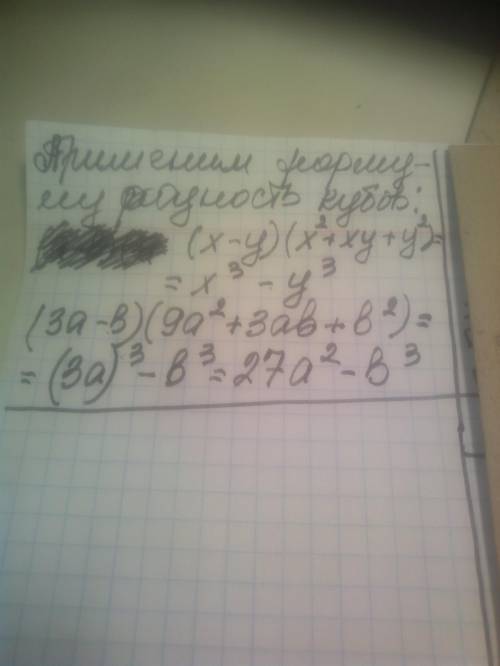 Применим форму-
лу разность кубов:
(x-y)(x²+xy+y²)=
= x³ - y³
(3a-b)(9a²+3ab+b²)=
= (3a)³ - b³ = 27a² - b³